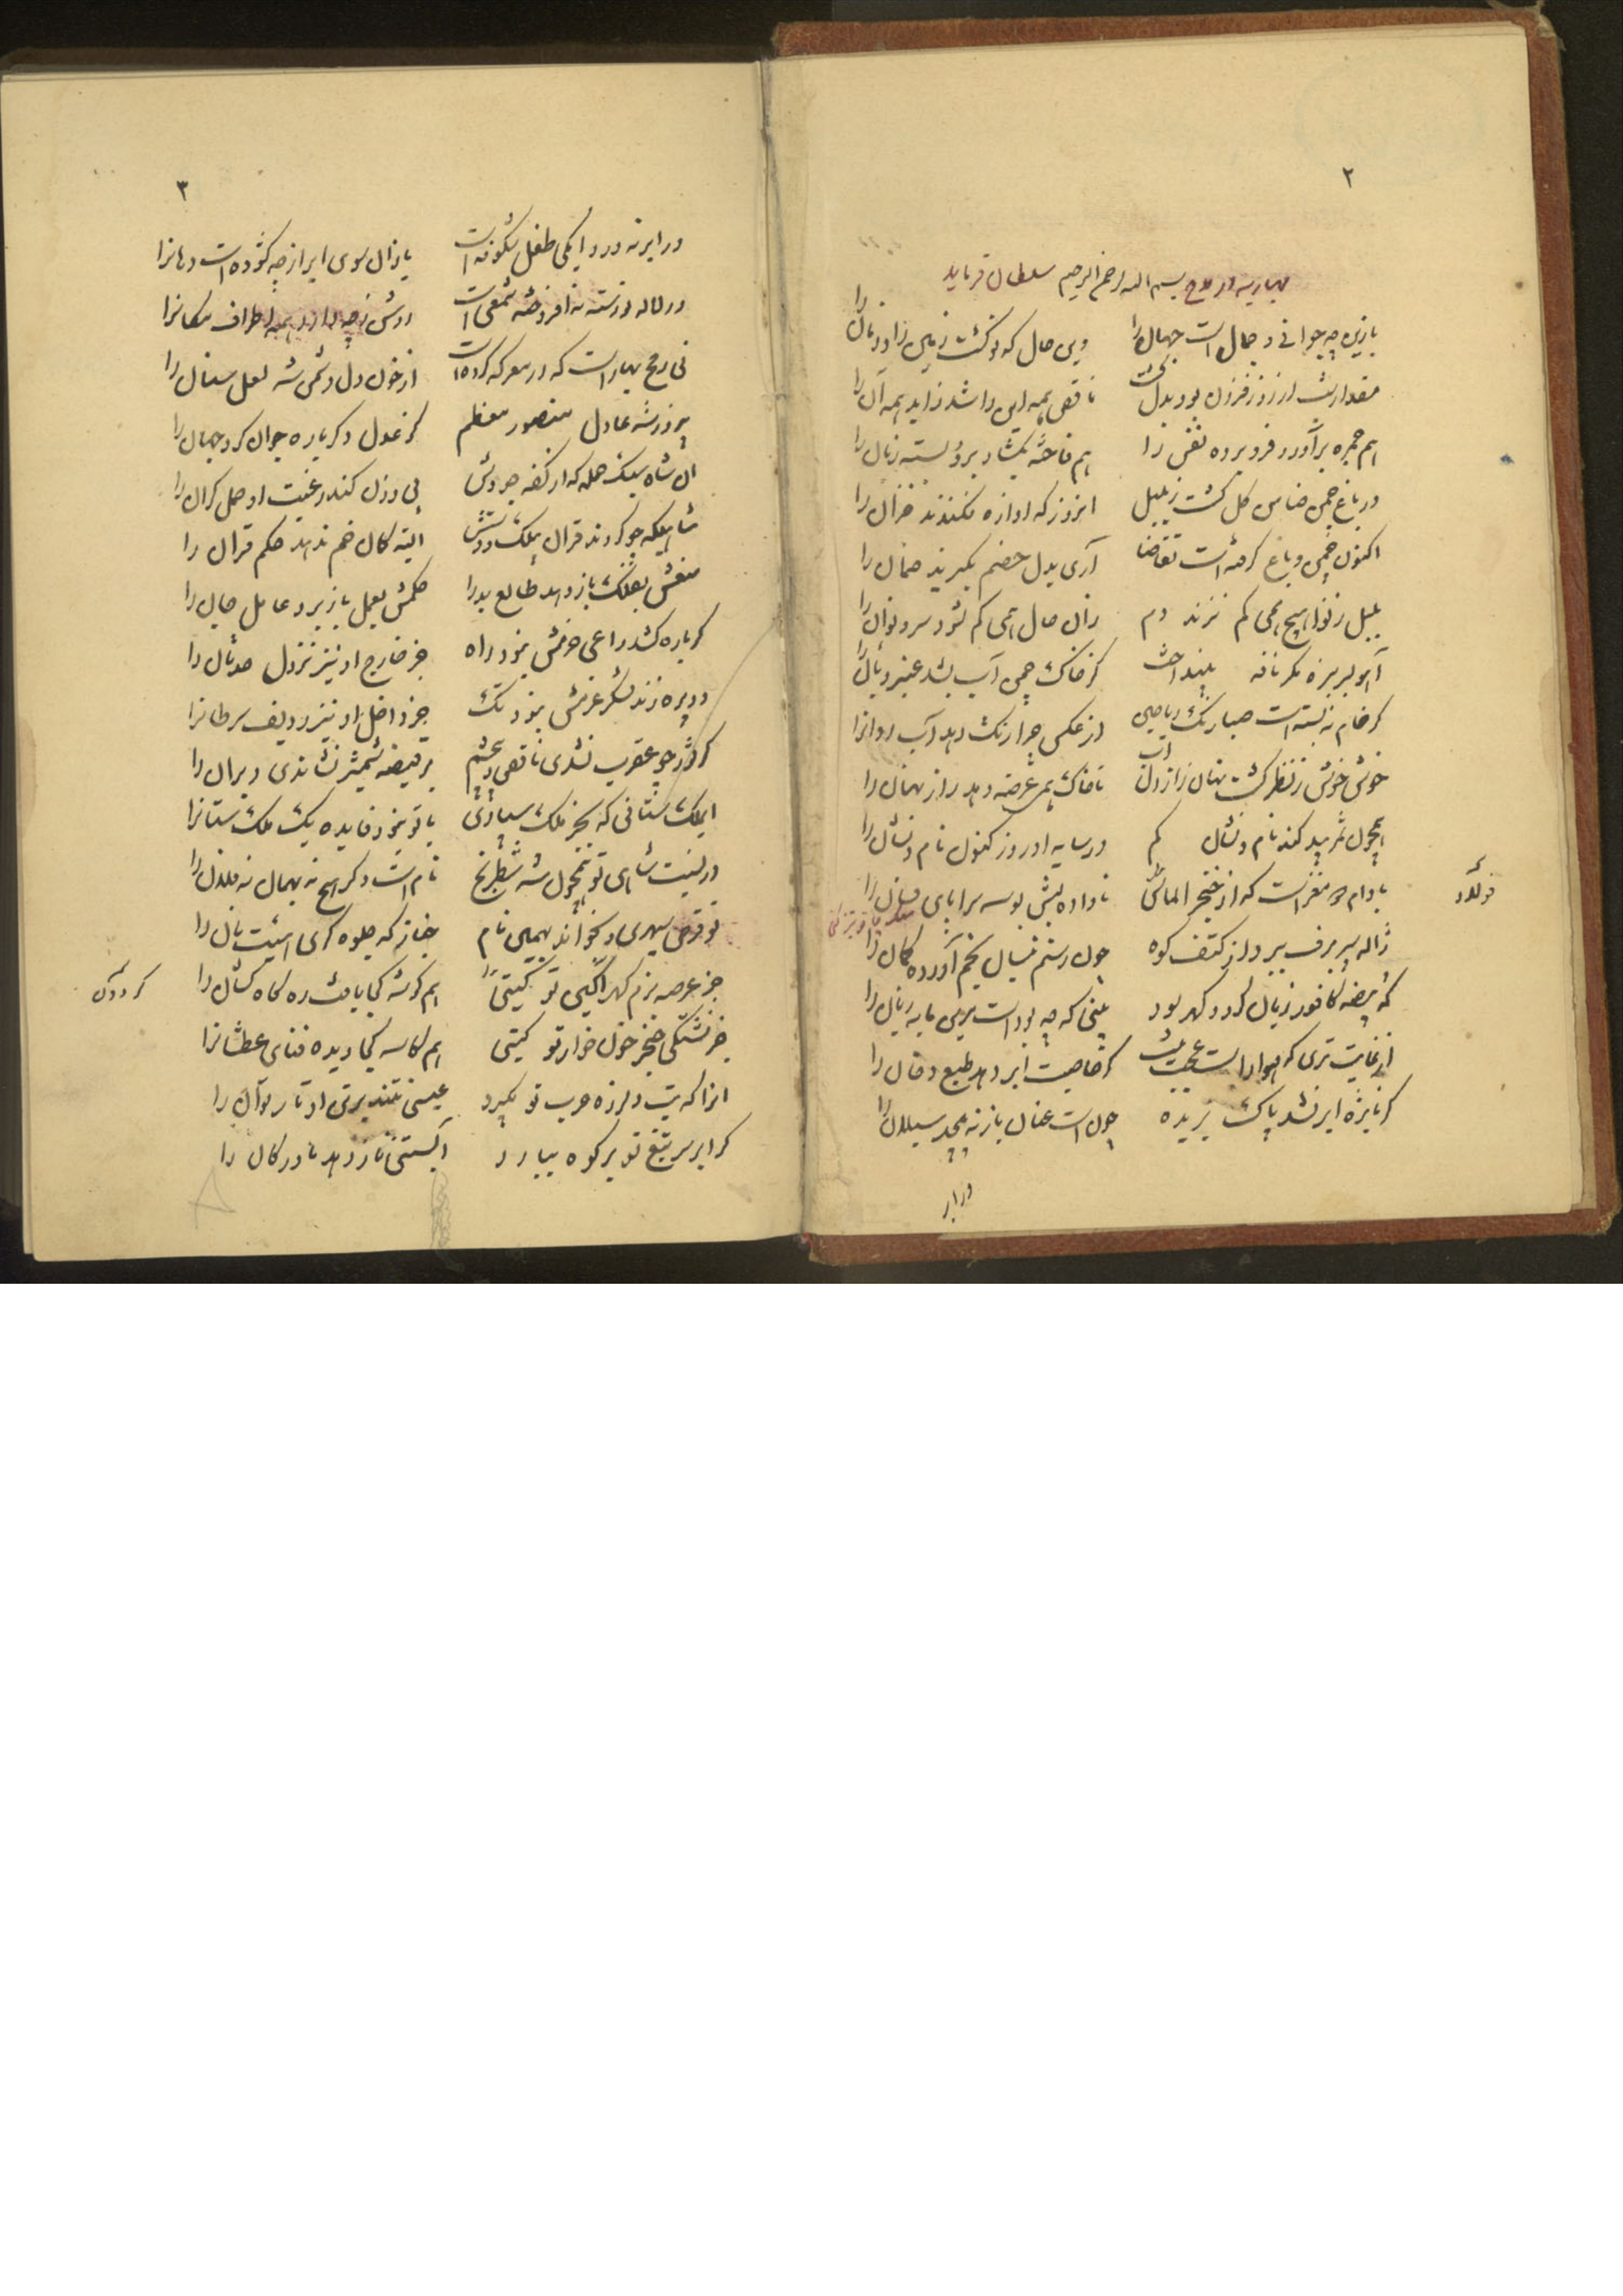 ۲
بهاریه در مدح بسم الله الرحمن الرحیم سلطان فرماید
باز این چه جوانی و جمال است جهان را وین حال که نو گشت زمین را و زمان را
مقدار شب از روز فزون بود بدل شد ناقص همه این را شد زاید همه آن را
هم جمره برآورد فرو برده نفس را هم فاخته بگشاد فرو بسته زبان را
در باغ چمن ضامن گل گشت ز بلبل آنروز که آوازه فکندند خزان را
اکنون چمن و باغ گرفته است تقاضا آری بدل خصم بگیرند ضمان را
بلبل ز نوا هیچ همی کم نزند دم زان حال همی کم نشود سرو نوان را
آهو بسر سبزه مگر نافه بینداخت کز خاک چمن آب بشد عنبر و بان را
گر خام نه بسته است صبا رنگ ریاحین از عکس چرا رنگ دهد آب روانرا
خوش خوش ز نظر گشت نهان راز دل آب تا خاک همی عرضه دهد راز نهان را
همچون ثمر بید کند نام و نشان گم در سایه او روز کنون نام و نشان را
بادام دو مغز است که از خنجر الماس ناداده لبش بوسه سراپای فسان را
ژاله سپر برف ببرد از کتف کوه چون رستم نیسان بخم آورده کمان را
که بیضه کافور زیان کرد و گهر سود بینی که چه سود است مرین مایه زیان را
از غایت تری که هوا راست عجب نیست گر خاصیت ابر دهد طبع دخان را
گر نایژه ابر نشد پاک بریده چون است عنان باز نه پیچد سیلان را
در ابر
۳
در ابر نه در دایگی طفل شکوفه است یازان سوی ابر از چه گشوده است دهانرا
ور لاله نورسته نه افروخته شمعی است روشن ز چه دارد همه اطراف مکانرا
نی رمح بهار است که در معرکه کرده است از خون دل دشمن شه لعل سنان را
پیروز شه عادل منصور معظم کز عدل دگر باره جوان کرد جهان را
آن شاه سبک حمله که از کفه جودش بی وزن کند رغبت او حمل گران را
شاهیکه چو کردند قران بیلک و دستش البته کمان خم ندهد حکم قران را
منعش بفلک باز دهد طالع بد را حکمش بعمل باز برد عامل جان را
گر باره کشد راعی حزمش نبود راه جز خارج او نیز نزول حدثان را
ور پره زند لشکر عزمش نبود تک جز داخل او نیز ردیف سرطانرا
گر ثور چو عقرب نشدی ناقص و بی چشم بر قبضه شمشیر نشاندی دبران را
ای ملک ستانی که بجز ملک سپاری با تو نبود فایده یک ملک ستانرا
در نسبت شاهی تو همچون شه شطرنج نام است و دگر هیچ نه بهمان نه فلان را
تو قرص سپهری و بخواند بهمین نام خباز گه جلوه گری هیئت نان را
جز عرصه بزم گهر آگین تو گیتی هم گوشه کجا یافت ره کاه کشان را
جز تشنگی خنجر خون خوار تو گیتی هم کاسه کجا دیده فنای عطشانرا
آنرا که تب و لرزه حرب تو بگیرد عیسی نتند بر تن او تار توان را
گر ابر سر تیغ تو بر کوه ببارد آبستنی نار دهد مادر کان را